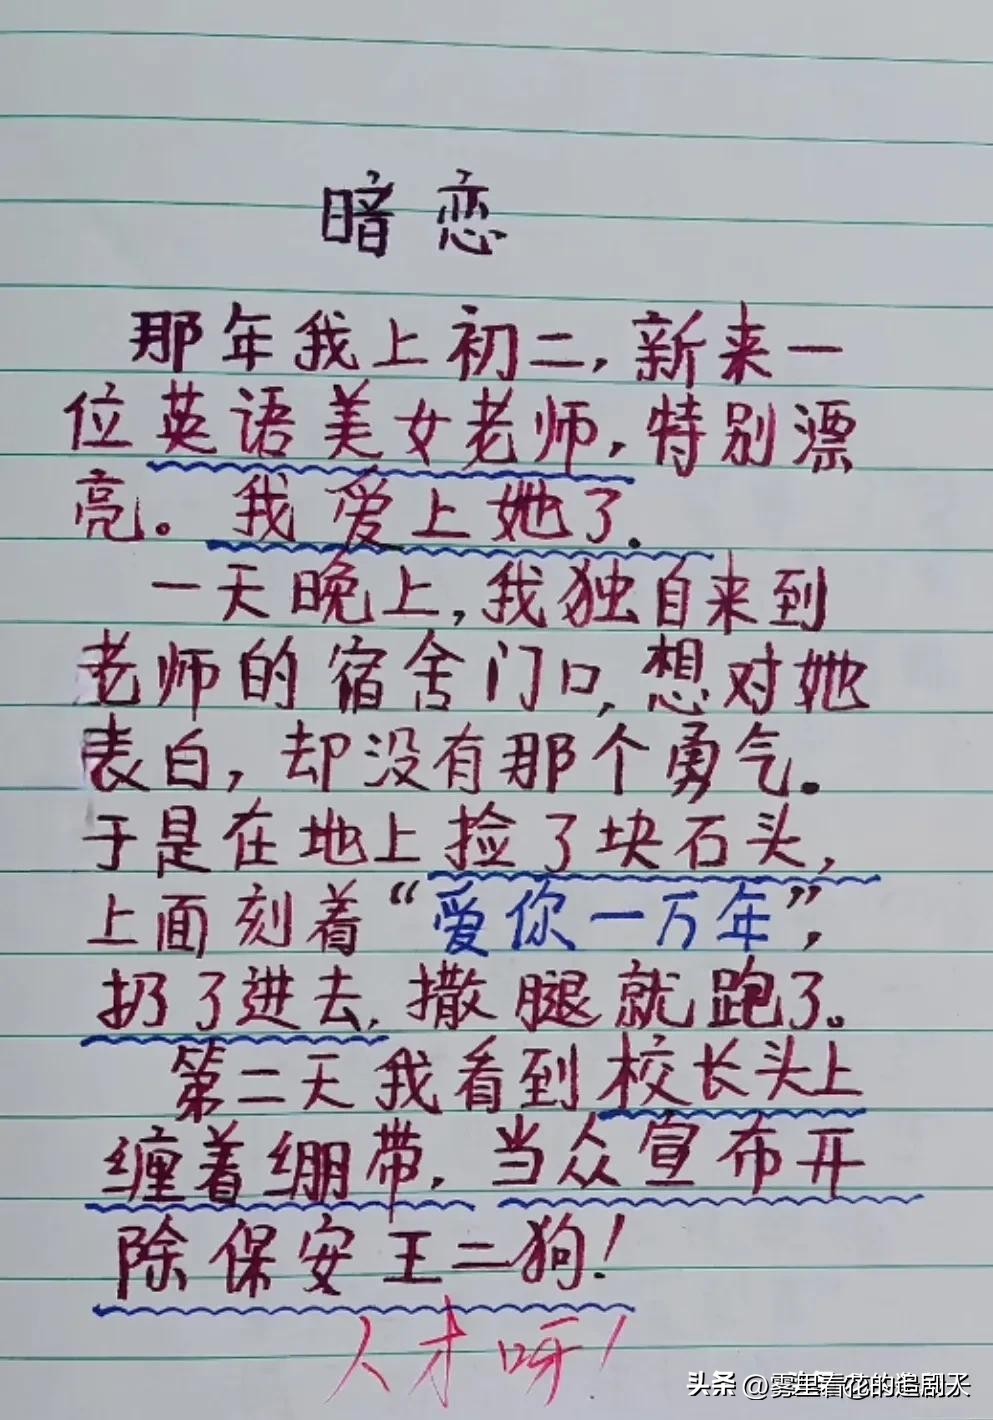 暗恋
那年我上初二,新来一
位英语美女老师,特别漂
亮。我爱上她了.
一天晚上,我独自来到
老师的宿舍门口,想对她
表白,却没有那个勇气。
于是在地上捡了块石头,
上面刻着“爱你一万年”,
扔了进去,撒腿就跑了。
第二天我看到校长头上
缠着绷带,当众宣布开
除保安王二狗!
人才呀!
头条 @雾里看花的追剧天